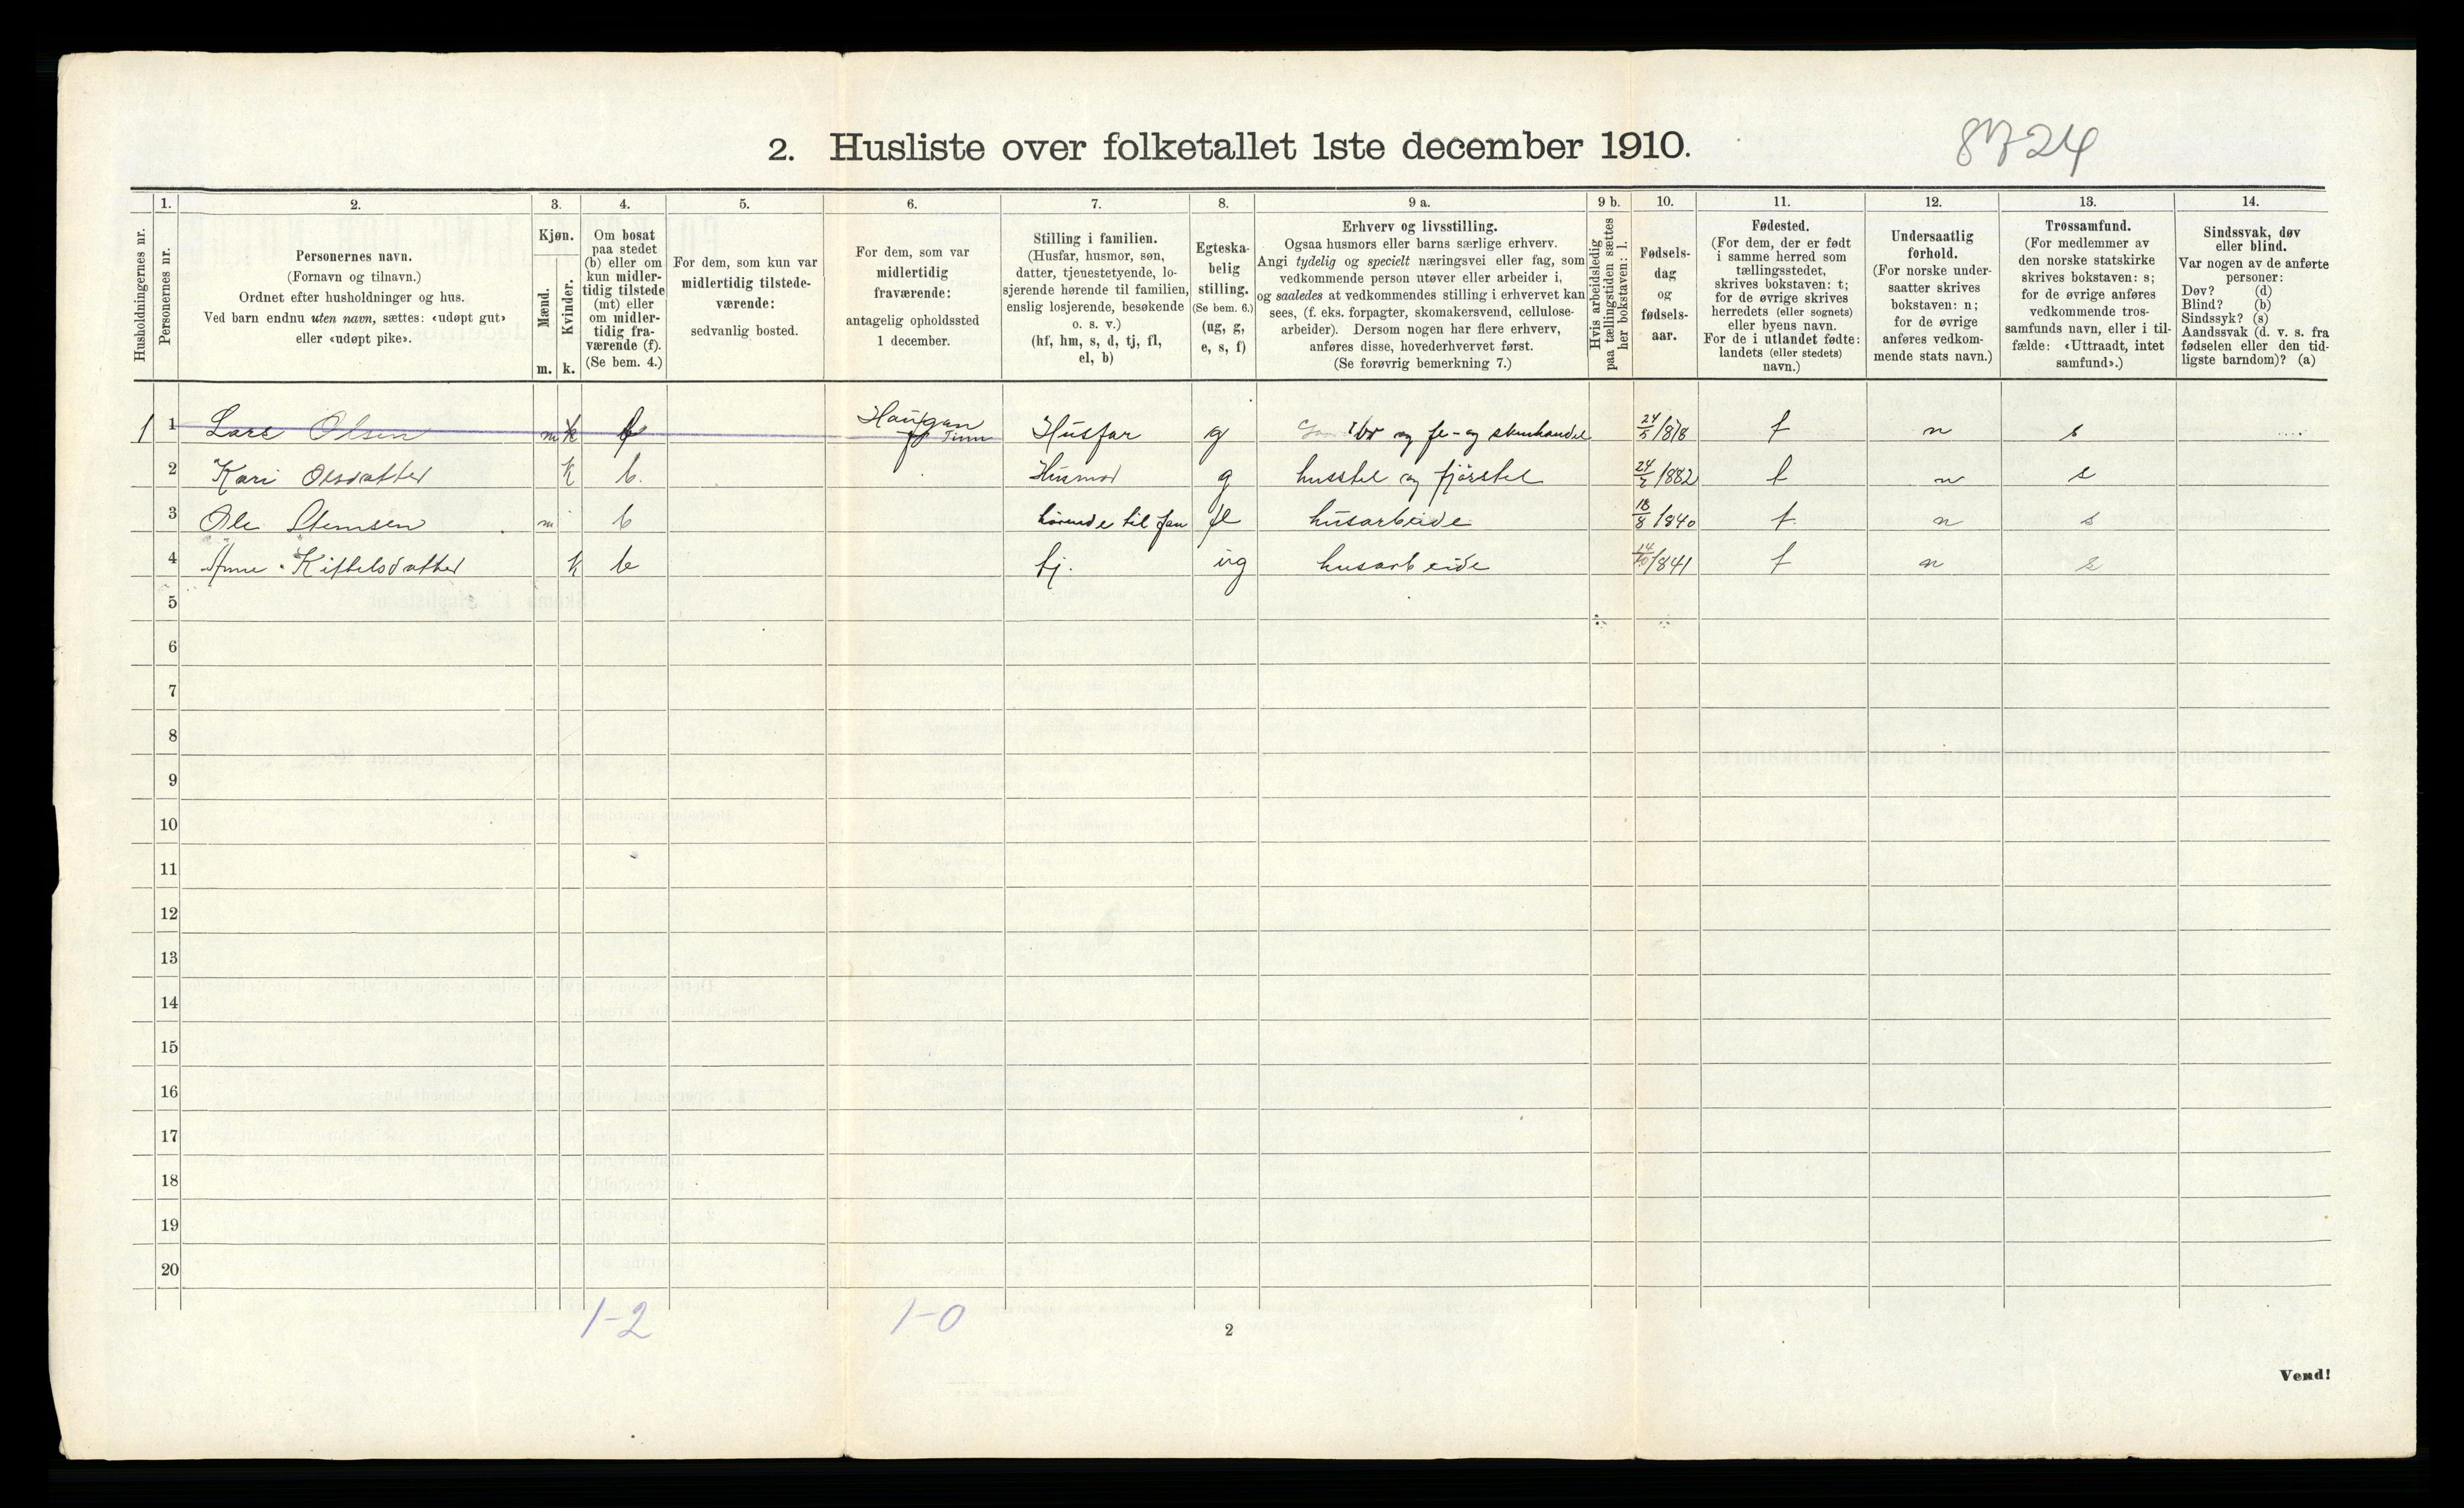 2. Husliste over folketallet 1ste december 1910.
8724
1. 2. 3. 4. 5. 6. 7. 8. 9 a. 9 b. 10. 11. 12. 13. 14.
Husholdningernes nr.
Personernes nr.
Personernes navn.
(Fornavn og tilnavn.)
Ordnet efter husholdninger og hus.
Ved barn endnu uten navn, sættes: «udøpt gut»
eller «udøpt pike».
Kjøn.
Mænd.
Kvinder.
m. k.
Om bosat
paa stedet
(b) eller om
kun midler-
tidig tilstede
(mt) eller
om midler-
tidig fra-
værende (f).
(Se bem. 4.)
For dem, som kun var
midlertidig tilstede-
værende:
sedvanlig bosted.
For dem, som var
midlertidig
fraværende:
antagelig opholdssted
1 december.
Stilling i familien.
(Husfar, husmor, søn,
datter, tjenestetyende, lo-
sjerende hørende til familien,
enslig losjerende, besøkende
o. s. v.)
(hf, hm, s, d, tj, fl,
el, b)
Egteska-
belig
stilling.
(Se bem. 6.)
(ug, g,
e, s, f)
Erhverv og livsstilling.
Ogsaa husmors eller barns særlige erhverv.
Angi tydelig og specielt næringsvei eller fag, som
vedkommende person utøver eller arbeider i,
og saaledes at vedkommendes stilling i erhvervet kan
sees, (f. eks. forpagter, skomakersvend, cellulose-
arbeider). Dersom nogen har flere erhverv,
anføres disse, hovederhvervet først.
(Se forøvrig bemerkning 7.)
Hvis arbeidsledig
paa tællingstiden sættes
her bokstaven: l.
Fødsels-
dag
og
fødsels-
aar.
Fødested.
(For dem, der er født
i samme herred som
tællingsstedet,
skrives bokstaven: t;
for de øvrige skrives
herredets (eller sognets)
eller byens navn.
For de i utlandet fødte:
landets (eller stedets)
navn.)
Undersaatlig
forhold.
(For norske under-
saatter skrives
bokstaven: n;
for de øvrige
anføres vedkom-
mende stats navn.)
Trossamfund.
(For medlemmer av
den norske statskirke
skrives bokstaven: s;
for de øvrige anføres
vedkommende tros-
samfunds navn, eller i til-
fælde: «Uttraadt, intet
samfund».)
Sindssvak, døv
eller blind.
Var nogen av de anførte
personer:
Døv? (d)
Blind? (b)
Sindssyk? (s)
Aandssvak (d. v. s. fra
fødselen eller den tid-
ligste barndom)? (a)
1 1 Lars Olsen m k Haugan Tinn Husfar g og fe- og skinhandel t n s
2 Kari Olsdatter k b. Husmor g husstel og fjösstel 24/7 1882 t n s
3 Ole Stemsen m b hörende til fam fl husarbeide 18/8 1840 t n s
4 Anne Kittelsdatter k b tj. ug husarbeide 14/10 1841 t n s
5
6
7
8
9
10
11
12
13
14
15
16
17
18
19
20
1-2 1-0
2
Vend!